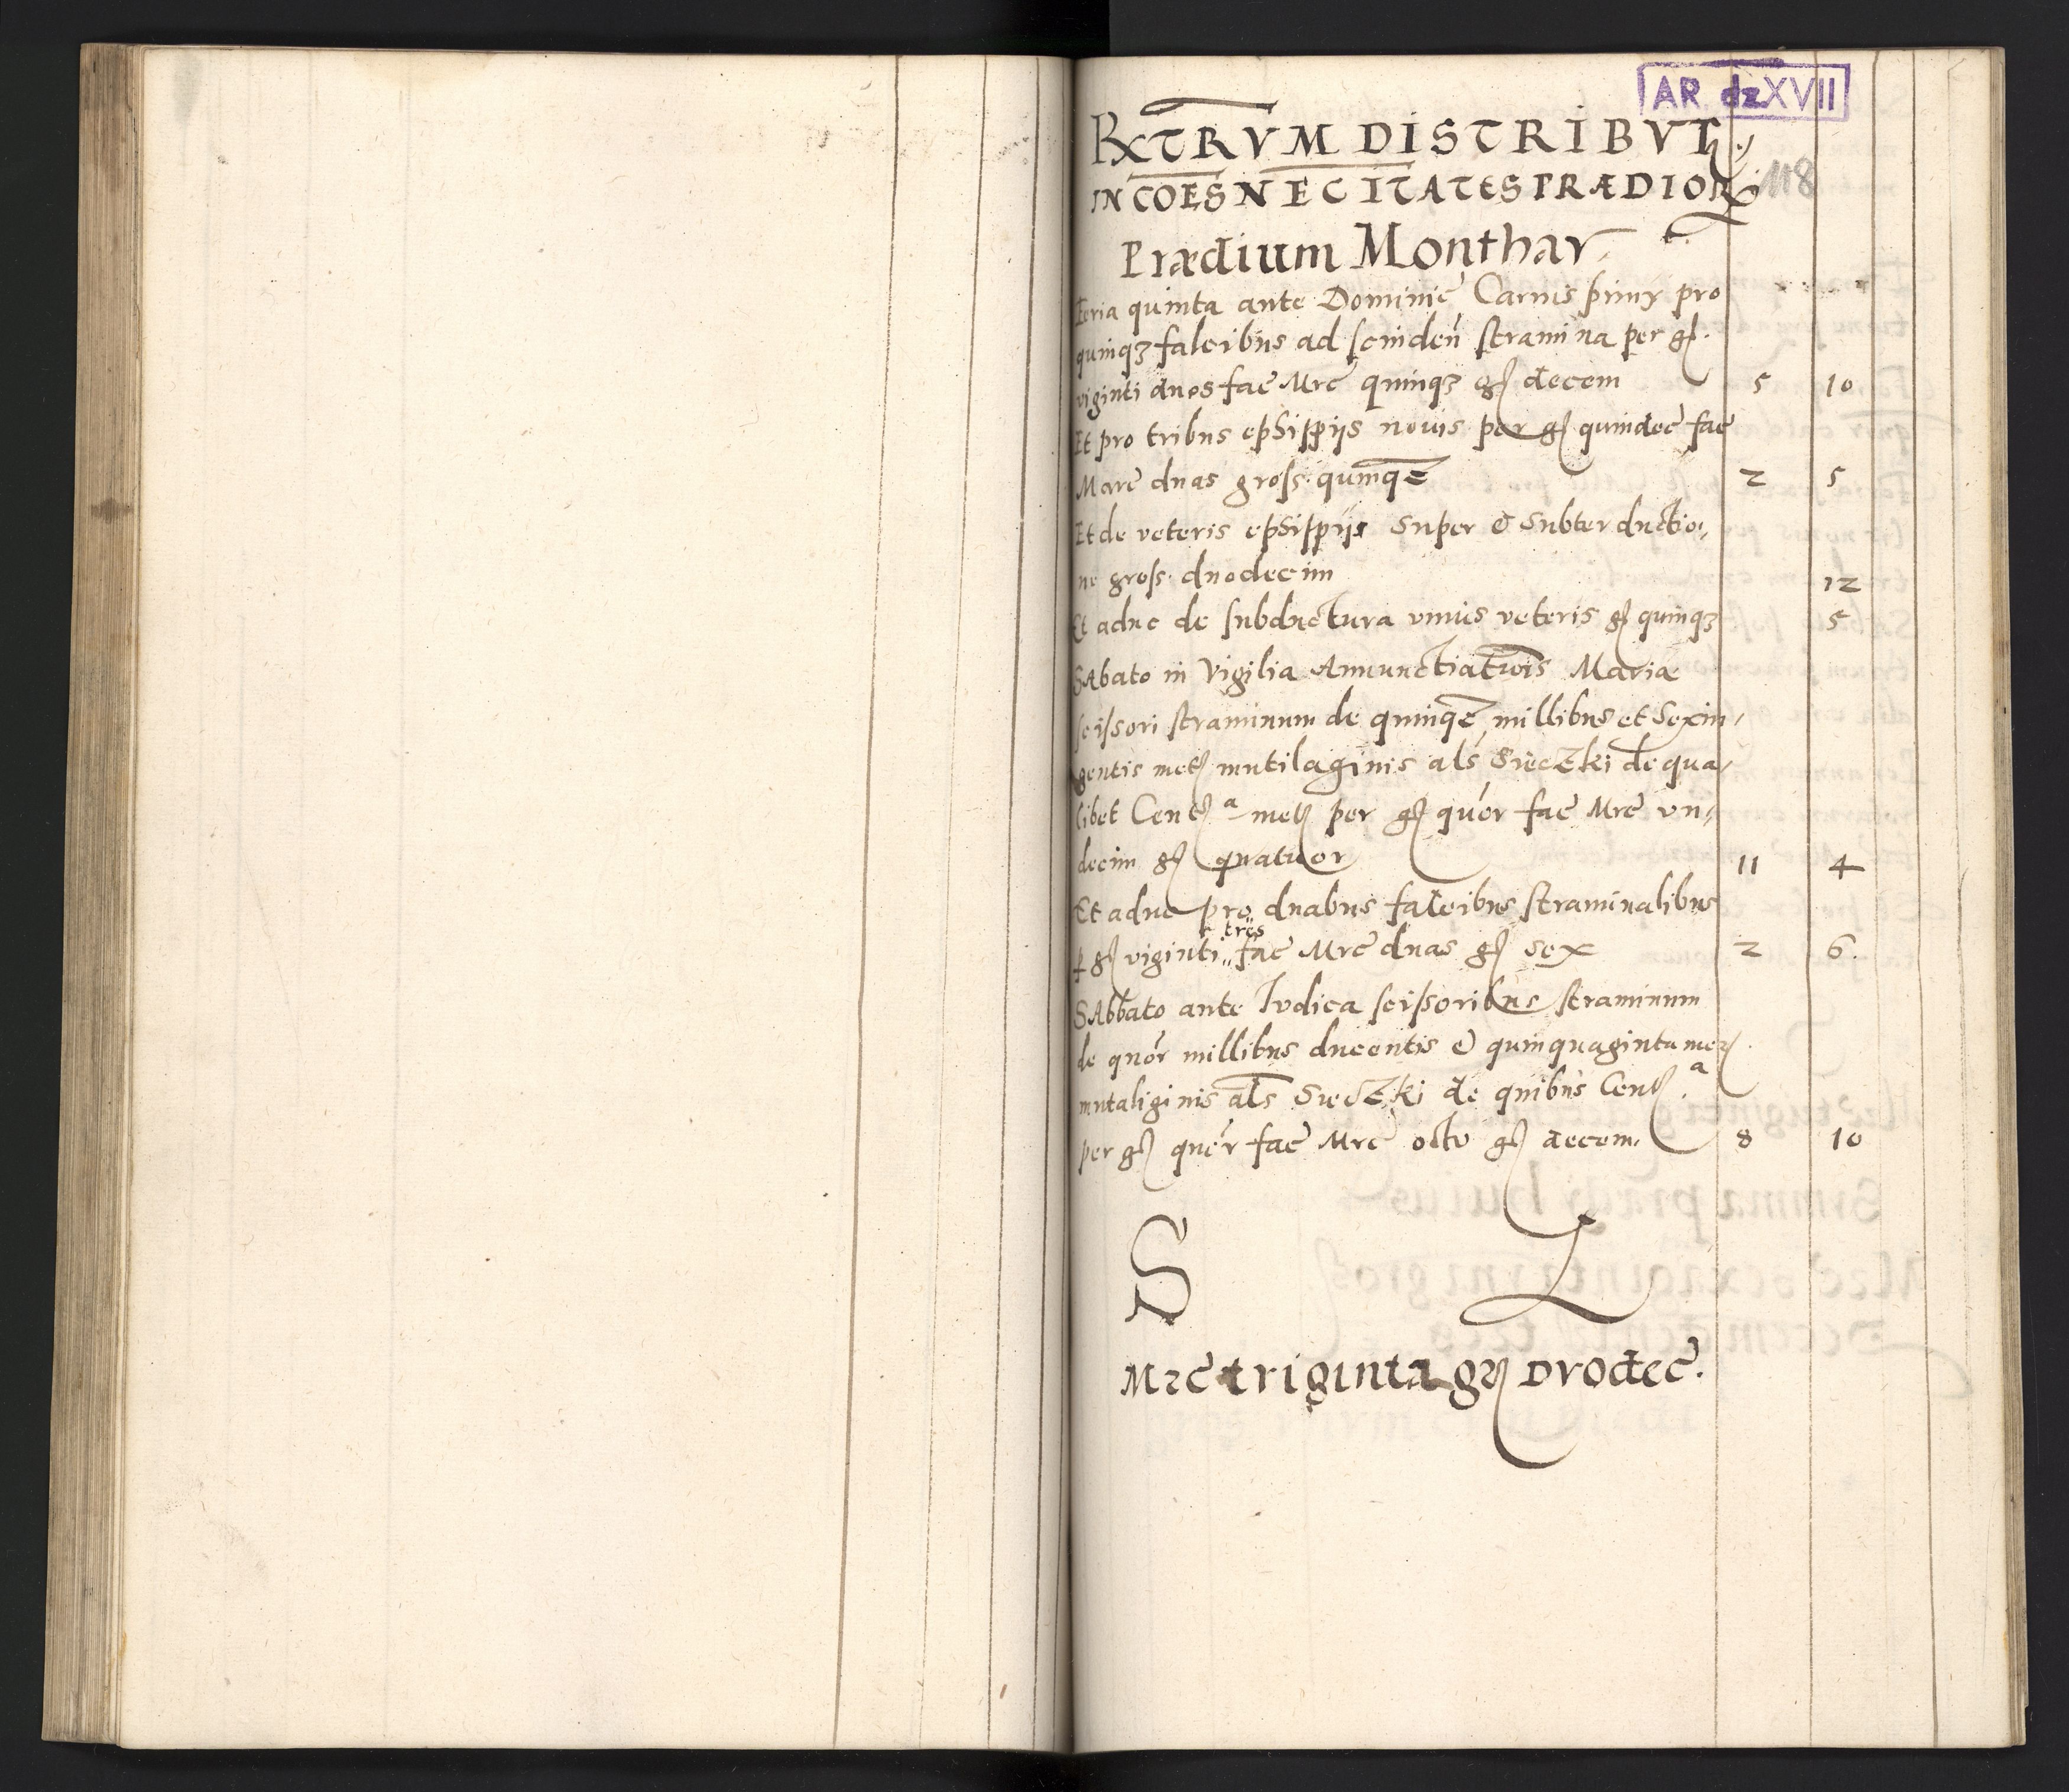 AR dz XVII
RXTRVM DISTRIBVT.
118
IN COES NECITATES PRÆDIOR
Prædium Monthar.
Feria quinta ante Dominic Carnis priuy pro
quinqȝ falcibus ad scinden stramina per gs.
viginti duos fac Mrc quinqȝ gs decem 5 10
Et pro tribus ephippijs nouis per gs quindec fac
Marc duas gross. quinqe 2 5
Et de veteris ephippijs super & subter ductio,
ne gross. duodecim 12
Et aduc de subductura vnius veteris gs quinqȝ 5
SAbato in Vigilia Annunctiatiois Mariæ
scissori straminum de quinqe millibus et Sexin,
gentis metꝭ mutilaginis als Sieczki de qua,
libet Centꝭ a metꝭ per gs quor fac Mrc vn,
decim gs quatuor 11 4
Et aduc pro duabus falcibus straminalibus
p gs viginti tres fac Mrc duas gs sex 2 6.
SAbbato ante Iudica scissoribus straminum
de quor millibus ducentis & quinquaginta metꝭ
mutaliginis als Sieczki de quibus Centꝭ a
per gs quor fac Mrc octo gs decem. 8 10
S
Mrc triginta grs dvodec.